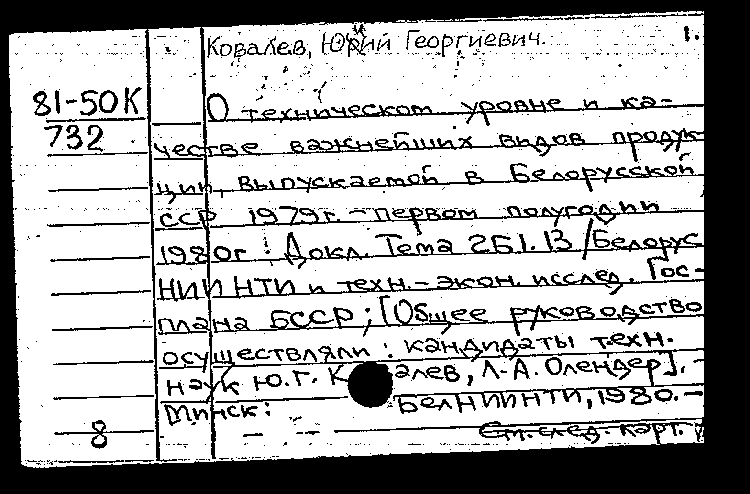 Ковалев, Юрий Георгиевич. 1.
81-50К
732
О техническом уровне и ка-
честве важнейших видов продук-
ции, выпускаемой в Белорусской
ССР 1979г. - первом полугодии
1980г : Докл. Тема 26.1.13 / Белорус
НИИ НТИ и техн.-экон. исслед. Гос-
плана БССР; [Общее руководство
осуществляли : кандидаты техн.
наук Ю.Г. К валев, Л.А. Олендер]. -
Минск: БелНИИНТИ, 1980. -
8 См. след. карт.